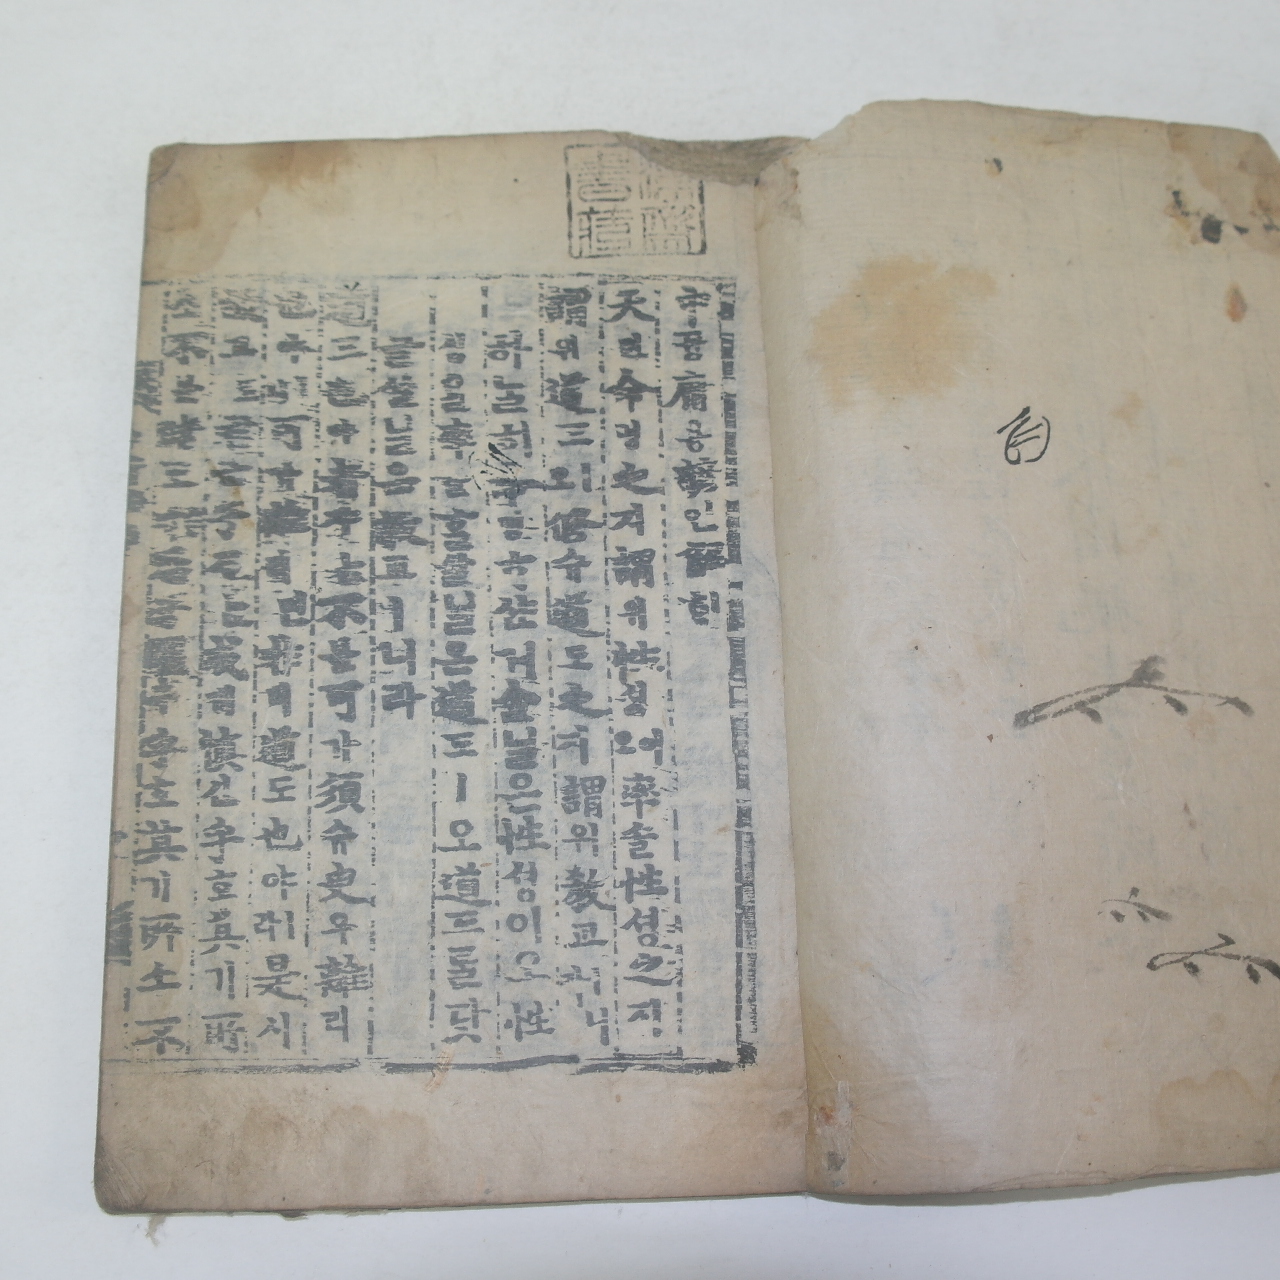 中듕庸용諺언解ᄒᆡ
天텬命명之지謂위性셩이오率솔性셩之지
謂위道도ㅣ오修슈道도之지謂위敎교ㅣ니
하ᄂᆞᆯ히命명ᄒᆞ샨거슬닐온性셩이오性
셩을率솔ᄒᆞᆯ슬닐온道도ㅣ오道도ᄅᆞᆯ닷
글슬닐온敎교ㅣ니라
道도也야者쟈ᄂᆞᆫ不블可가須슈臾유離리
也야ㅣ니可가離리면非비道도也야ㅣ라是시
故고로君군子ᄌᆞᄂᆞᆫ戒계愼신乎호其기所
소不블睹도ᄒᆞ며恐공懼구乎호其기所소不